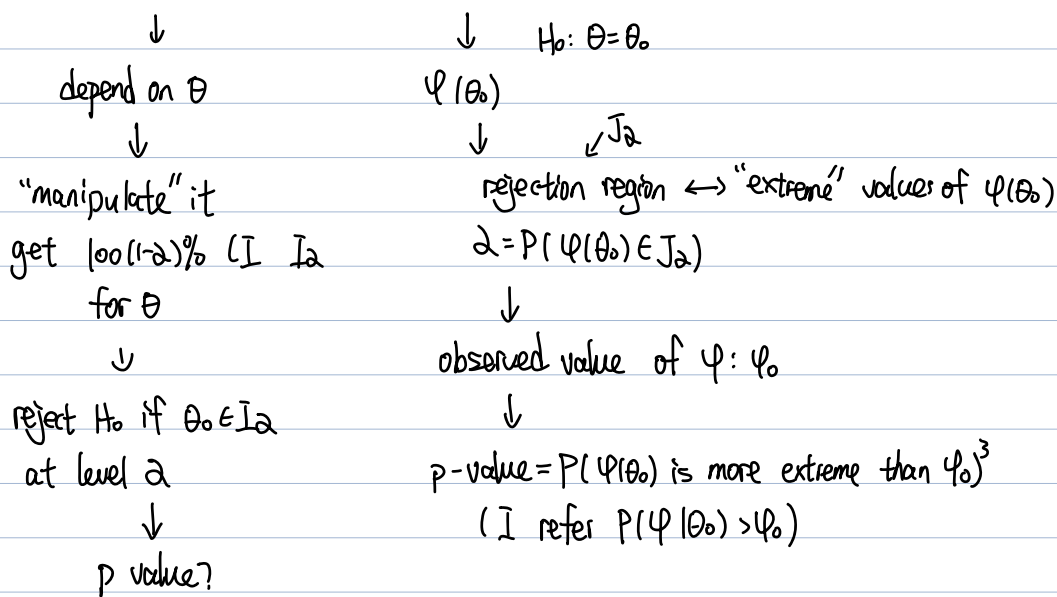 ↓
depend on θ
↓
"manipulate" it
get 100(1-α)% CI Iα
for θ
↓
reject H₀ if θ₀ ∈ Iα
at level α
↓
p value?
↓ H₀: θ=θ₀
φ(θ₀)
↓ ↙ Jα
rejection region ↔ "extreme" values of φ(θ₀)
α = P( φ(θ₀) ∈ Jα)
↓
observed value of φ: φ₀
↓
p-value = P( φ(θ₀) is more extreme than φ₀)³
( I refer P(φ|θ₀) > φ₀)